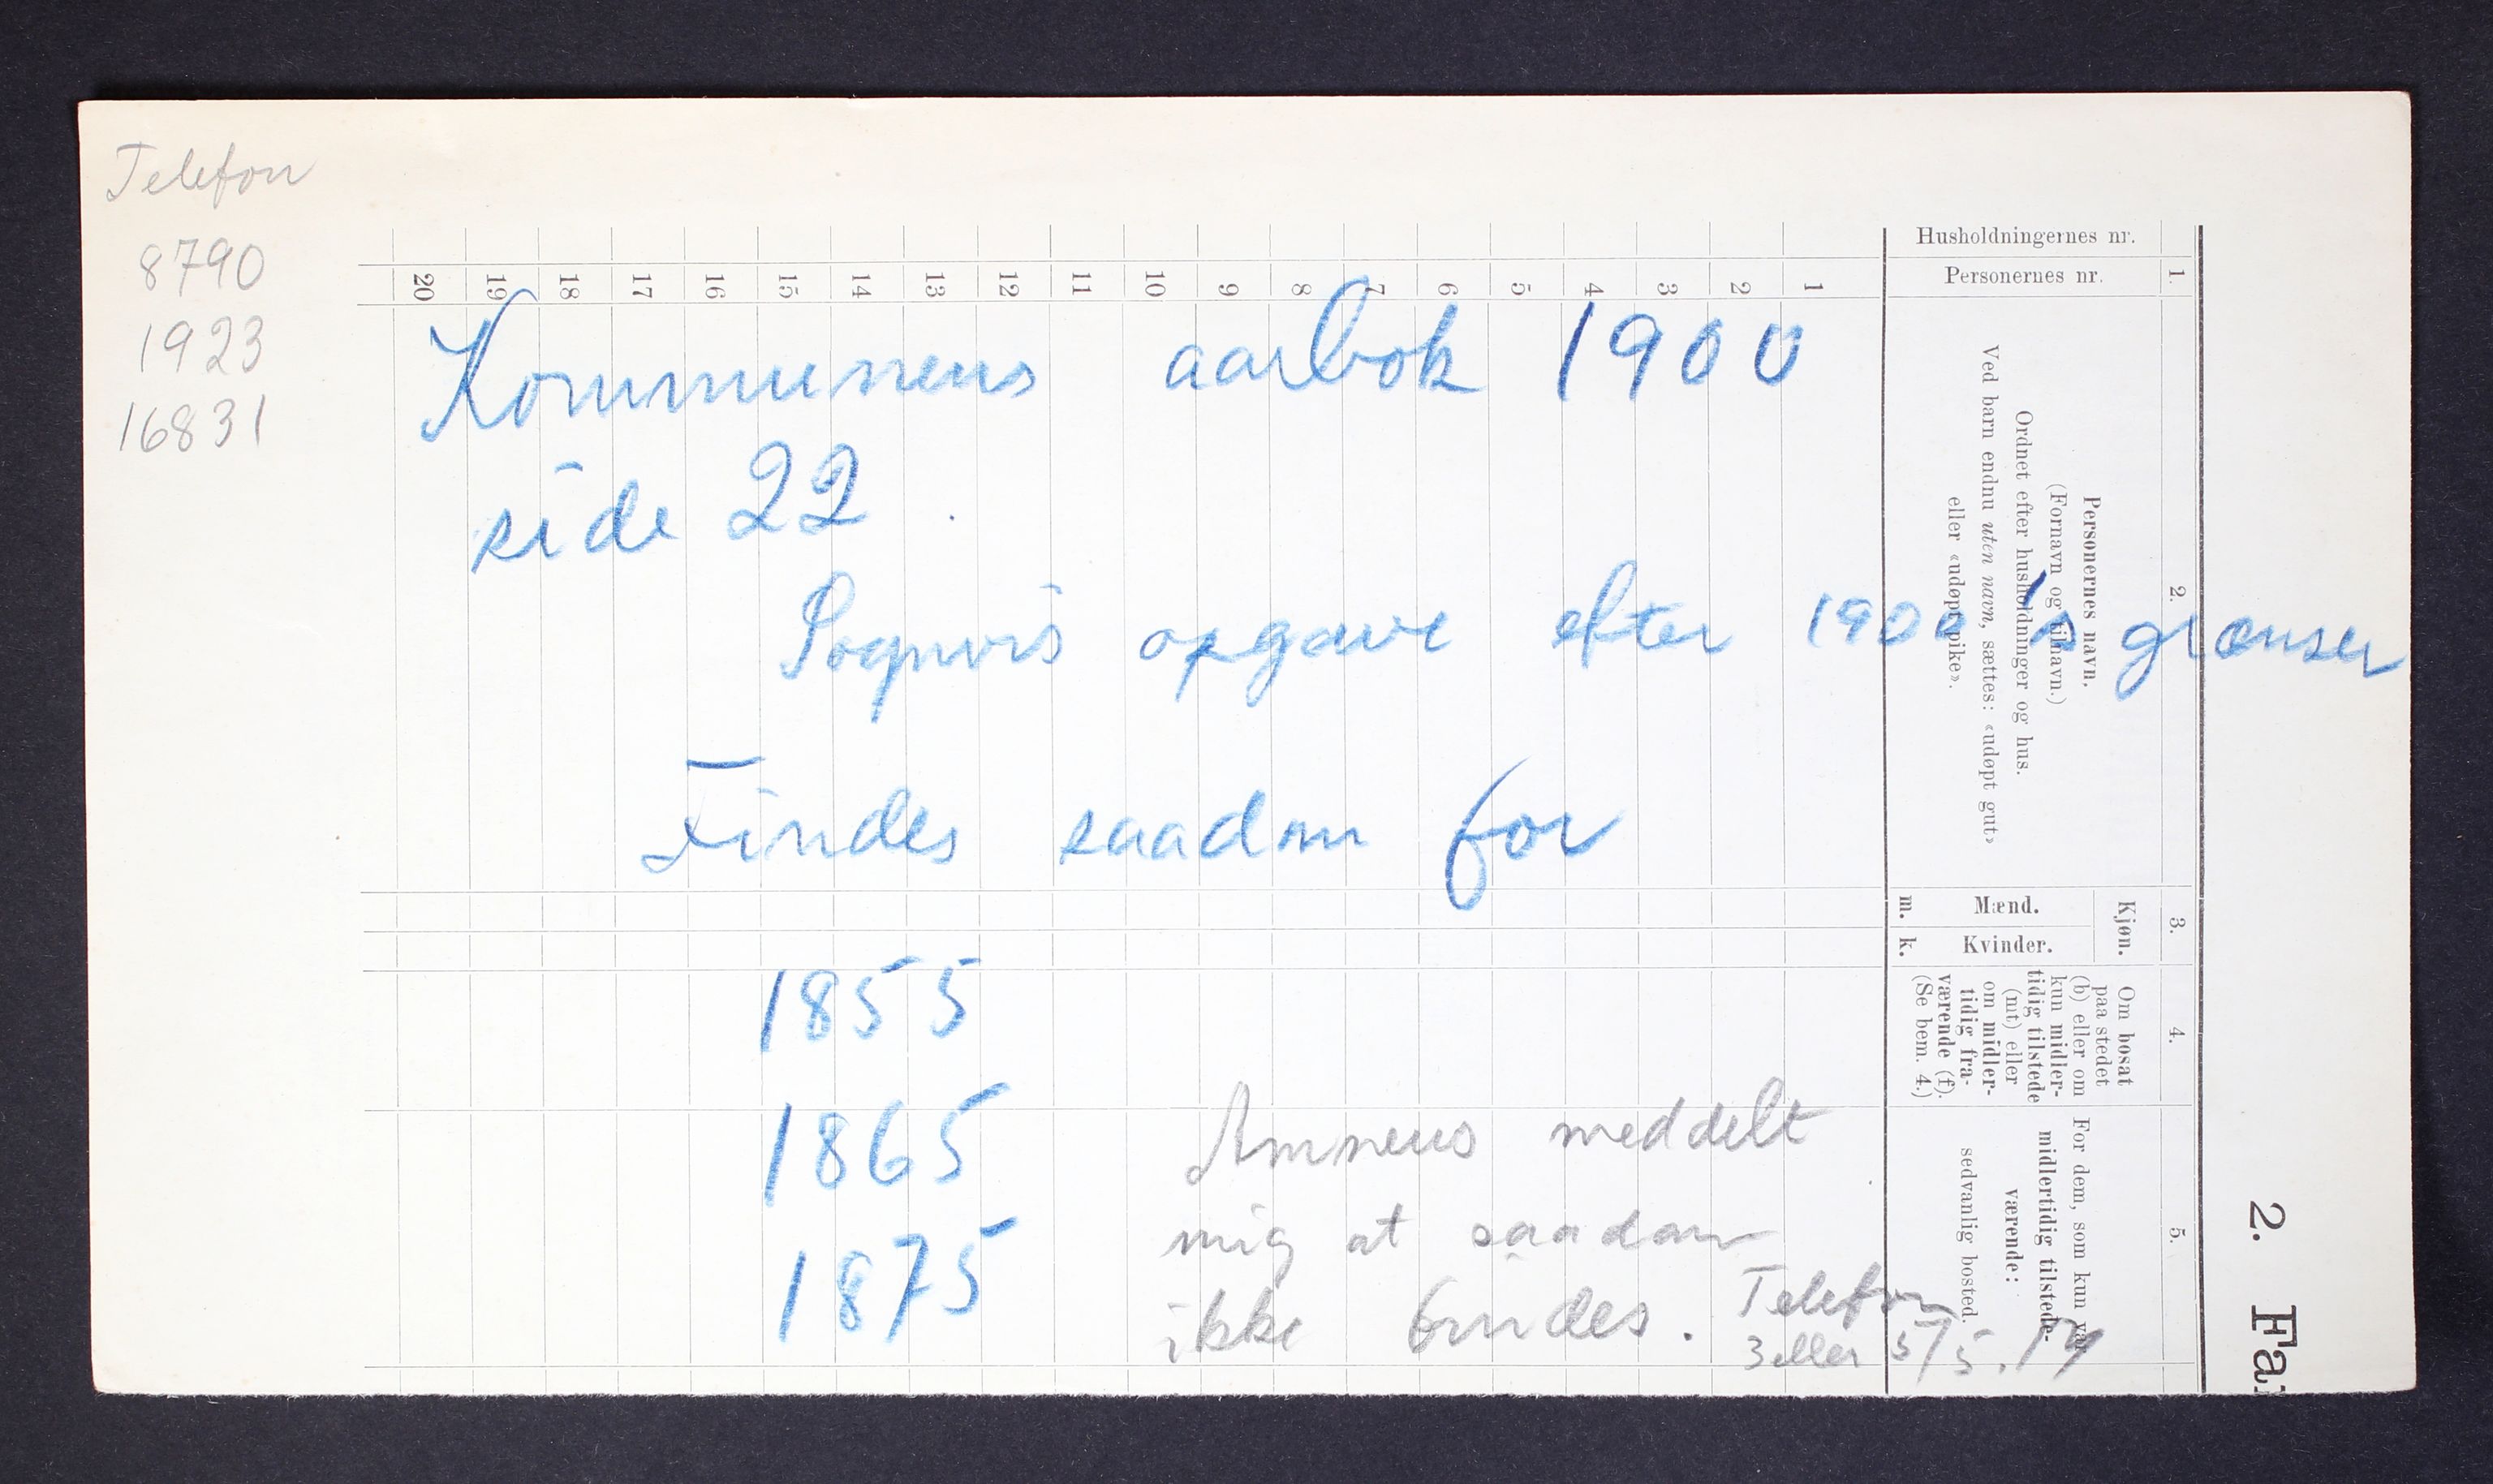 Telefon
8790
1923
16831
Kommunens aarbok 1900
side 22
Sognvis opgave efter 1900 grænser
Findes saadan for
1855
1865
1875
Amneus meddelt
mig at saadan
ikke findes. Telefon
3 eller 5/5.17
20 19 18 17 16 15 14 13 12 11 10 9 8 7 6 5 4 3 2 1
Husholdningernes nr.
1.
Personernes nr.
2.
Personernes navn.
(Fornavn og tilnavn.)
Ordnet efter husholdninger og hus.
Ved barn endnu uten navn, sættes: «udøpt gut»
eller «udøpt pike».
3.
Kjøn.
Mænd.
m.
Kvinder.
k.
4.
Om bosat
paa stedet
(b) eller om
kun midler-
tidig tilstede
(mt) eller
om midler-
tidig fra-
værende (f).
(Se bem. 4.)
5.
For dem, som kun va
midlertidig tilstede-
værende:
sedvanlig bosted.
2. Fa